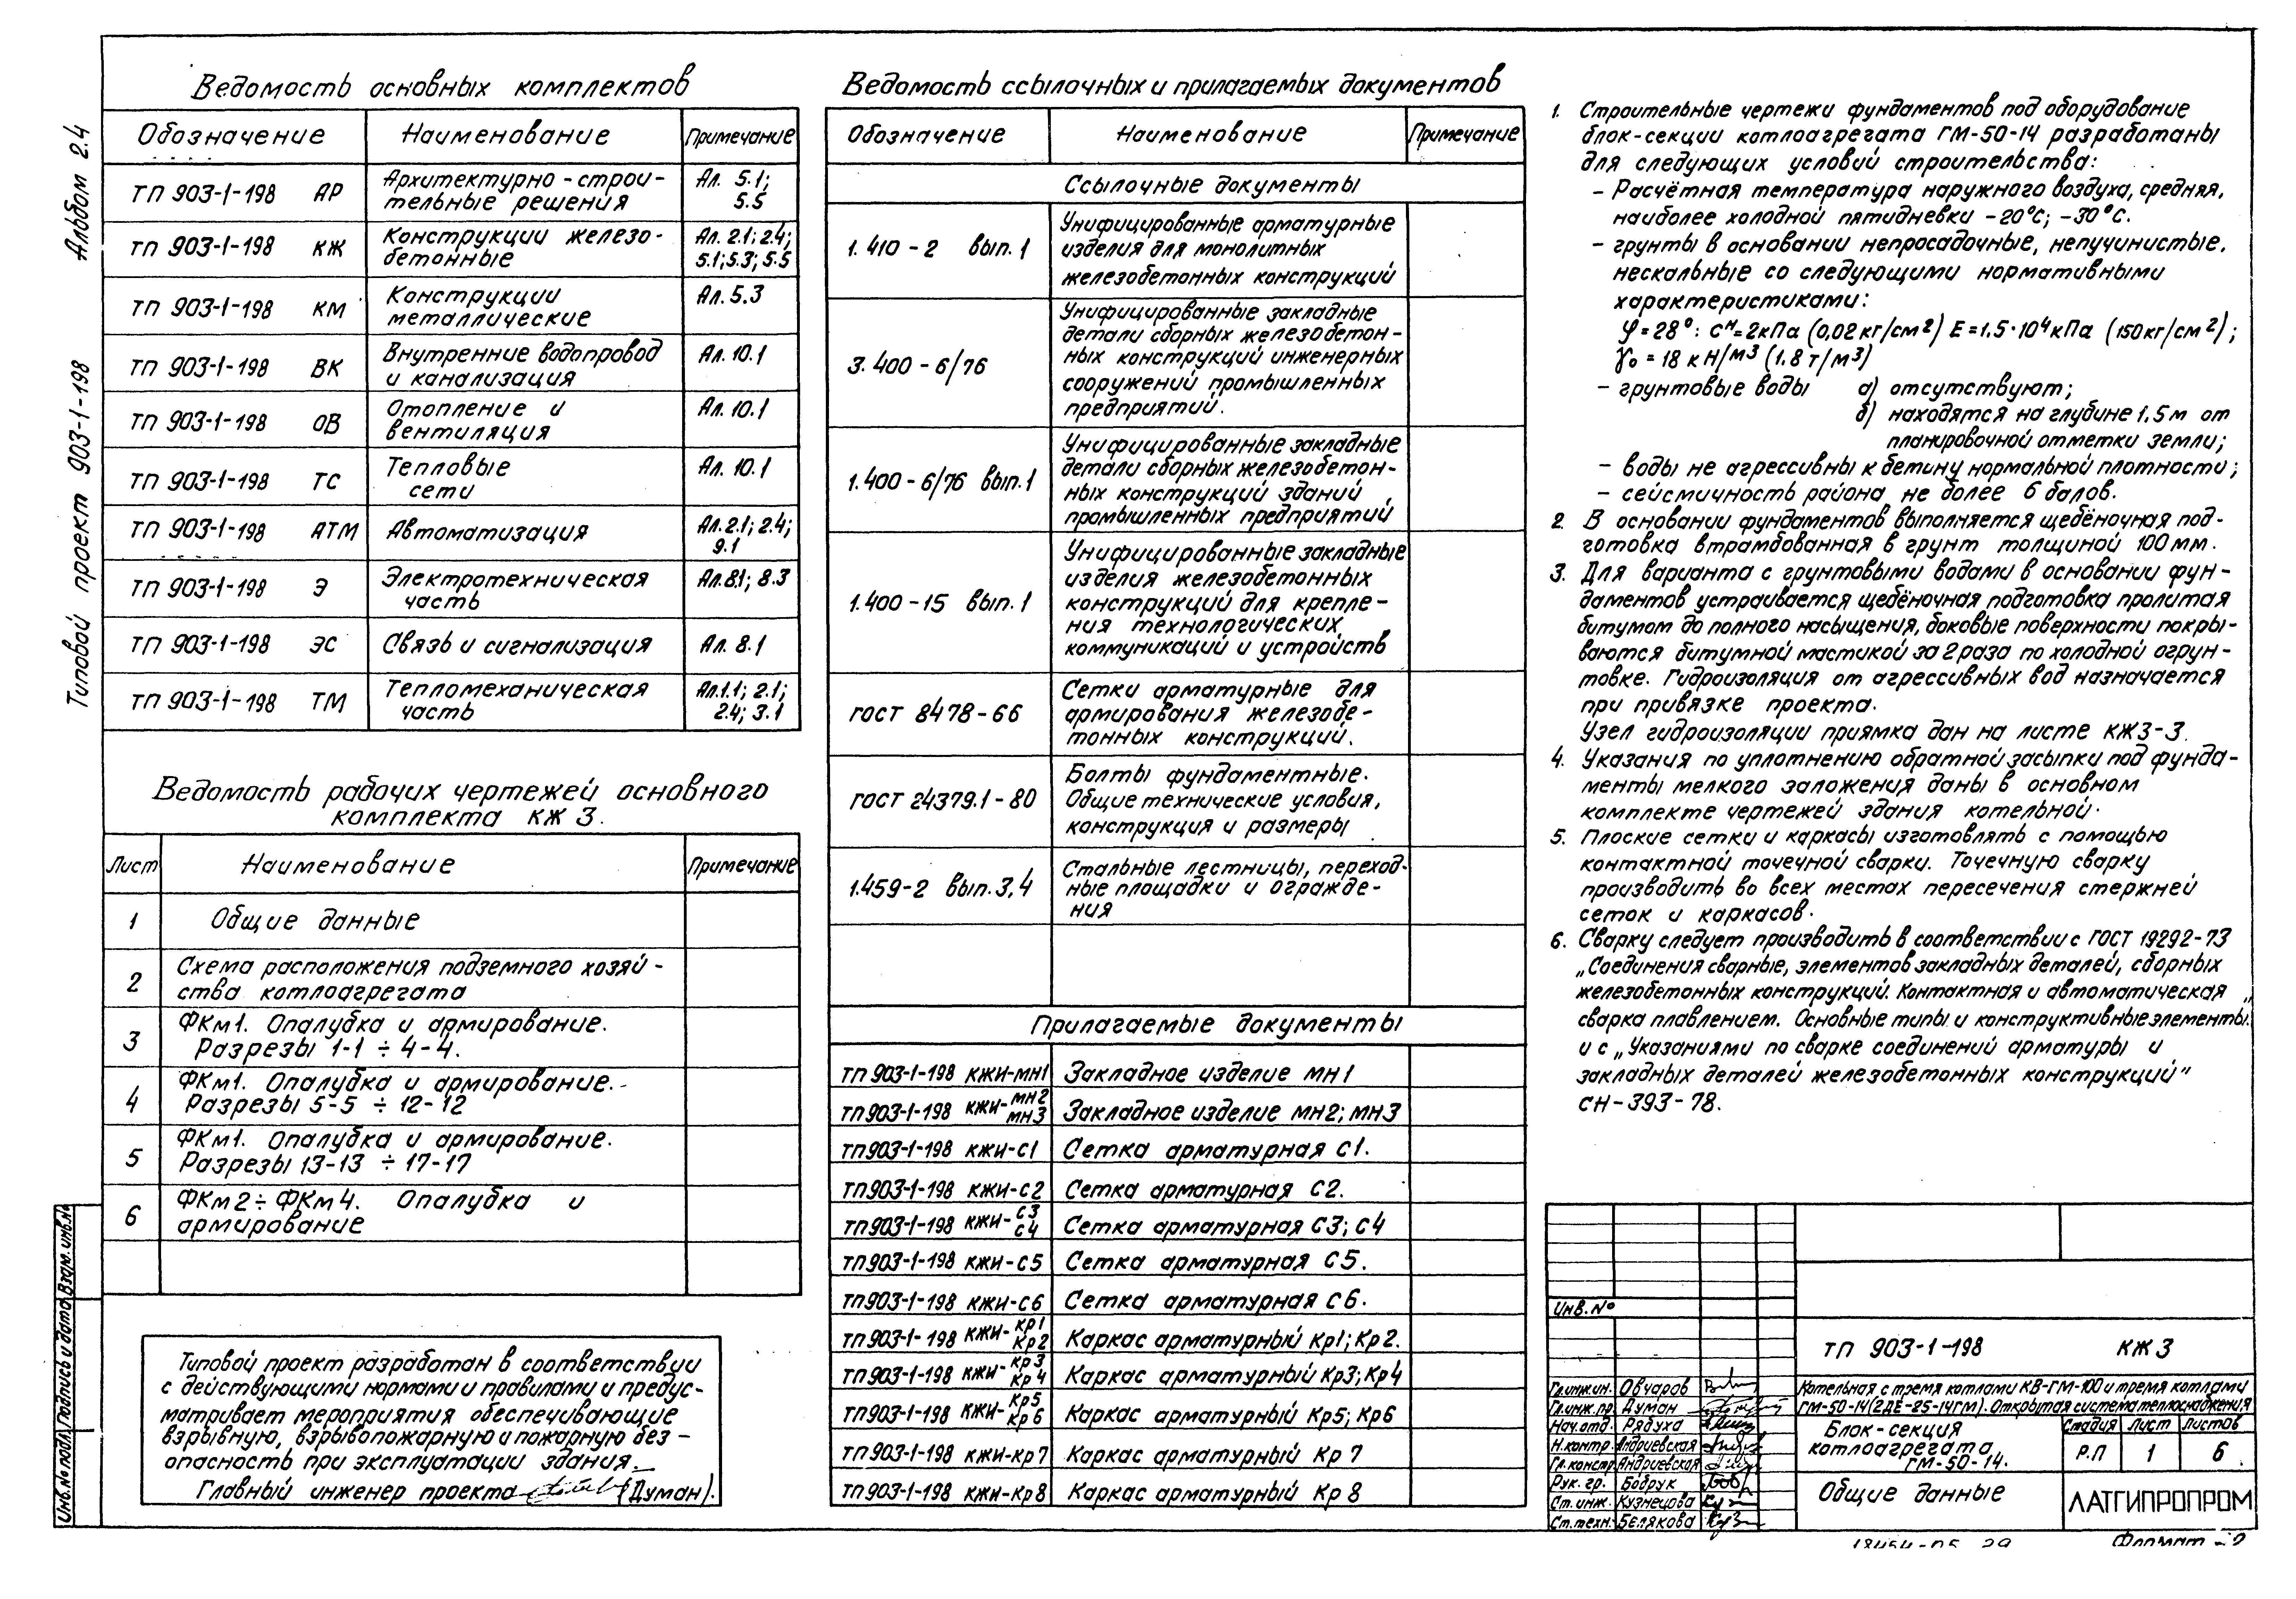 Альбом 2.4
Типовой проект 903-1-198
Ведомость основных комплектов
Обозначение Наименование Примечание
ТП 903-1-198 АР Архитектурно-строи-
тельные решения Ал. 5.1;
5.5
ТП 903-1-198 КЖ Конструкции железо-
бетонные Ал. 2.1; 2.4;
5.1; 5.3; 5.5
ТП 903-1-198 КМ Конструкции
металлические Ал. 5.3
ТП 903-1-198 ВК Внутренние водопровод
и канализация Ал. 10.1
ТП 903-1-198 ОВ Отопление и
вентиляция Ал. 10.1
ТП 903-1-198 ТС Тепловые
сети Ал. 10.1
ТП 903-1-198 АТМ Автоматизация Ал. 2.1; 2.4;
9.1
ТП 903-1-198 Э Электротехническая
часть Ал. 8.1; 8.3
ТП 903-1-198 ЭС Связь и сигнализация Ал. 8.1
ТП 903-1-198 ТМ Тепломеханическая
часть Ал. 1.1; 2.1;
2.4; 3.1
Ведомость рабочих чертежей основного
комплекта КЖ 3.
Лист Наименование Примечание
1 Общие данные
2 Схема расположения подземного хозяй-
ства котлоагрегата
3 ФКм1. Опалубка и армирование.
Разрезы 1-1 ÷ 4-4.
4 ФКм1. Опалубка и армирование.
Разрезы 5-5 ÷ 12-12
5 ФКм1. Опалубка и армирование.
Разрезы 13-13 ÷ 17-17
6 ФКм2 ÷ ФКм4. Опалубка и
армирование
Типовой проект разработан в соответствии
с действующими нормами и правилами и предус-
матривает мероприятия обеспечивающие
взрывную, взрывопожарную и пожарную без-
опасность при эксплуатации здания.
Главный инженер проекта (Думан).
Ведомость ссылочных и прилагаемых документов
Обозначение Наименование Примечание
Ссылочные документы
1.410-2 вып.1 Унифицированные арматурные
изделия для монолитных
железобетонных конструкций
3.400-6/76 Унифицированные закладные
детали сборных железобетон-
ных конструкций инженерных
сооружений промышленных
предприятий.
1.400-6/76 вып.1 Унифицированные закладные
детали сборных железобетон-
ных конструкций зданий
промышленных предприятий
1.400-15 вып.1 Унифицированные закладные
изделия железобетонных
конструкций для крепле-
ния технологических
коммуникаций и устройств
ГОСТ 8478-66 Сетки арматурные для
армирования железобе-
тонных конструкций.
ГОСТ 24379.1-80 Болты фундаментные.
Общие технические условия,
конструкция и размеры
1.459-2 вып. 3,4 Стальные лестницы, переход-
ные площадки и огражде-
ния
Прилагаемые документы
ТП903-1-198 КЖИ-МН1 Закладное изделие МН1
ТП903-1-198 КЖИ-МН2
МН3 Закладное изделие МН2; МН3
ТП903-1-198 КЖИ-С1 Сетка арматурная С1.
ТП903-1-198 КЖИ-С2 Сетка арматурная С2.
ТП903-1-198 КЖИ-С3
С4 Сетка арматурная С3; С4
ТП903-1-198 КЖИ-С5 Сетка арматурная С5.
ТП903-1-198 КЖИ-С6 Сетка арматурная С6.
ТП903-1-198 КЖИ-Кр1
Кр2 Каркас арматурный Кр1; Кр2.
ТП903-1-198 КЖИ-Кр3
Кр4 Каркас арматурный Кр3; Кр4
ТП903-1-198 КЖИ-Кр5
Кр6 Каркас арматурный Кр5; Кр6
ТП903-1-198 КЖИ-Кр7 Каркас арматурный Кр 7
ТП903-1-198 КЖИ-Кр8 Каркас арматурный Кр 8
1. Строительные чертежи фундаментов под оборудование
блок-секции котлоагрегата ГМ-50-14 разработаны
для следующих условий строительства:
- Расчётная температура наружного воздуха, средняя,
наиболее холодной пятидневки -20°С; -30°С.
- грунты в основании непросадочные, непучинистые,
нескальные со следующими нормативными
характеристиками:
φ=28°: Cᴴ=2кПа (0,02 кг/см²) E=1.5·10⁴кПа (150кг/см²);
γ₀ = 18 кН/м³ (1.8 т/м³)
- грунтовые воды а) отсутствуют;
б) находятся на глубине 1.5м от
планировочной отметки земли;
- воды не агрессивны к бетину нормальной плотности;
- сейсмичность района не более 6 балов.
2. В основании фундаментов выполняется щебёночная под-
готовка втрамбованная в грунт толщиной 100мм.
3. Для варианта с грунтовыми водами в основании фун-
даментов устраивается щебёночная подготовка пролитая
битумом до полного насыщения, боковые поверхности покры-
ваются битумной мастикой за 2 раза по холодной огрун-
товке. Гидроизоляция от агрессивных вод назначается
при привязке проекта.
Узел гидроизоляции приямка дан на листе КЖ3-3.
4. Указания по уплотнению обратной засыпки под фунда-
менты мелкого заложения даны в основном
комплекте чертежей здания котельной.
5. Плоские сетки и каркасы изготовлять с помощью
контактной точечной сварки. Точечную сварку
производить во всех местах пересечения стержней
сеток и каркасов.
6. Сварку следует производить в соответствии с ГОСТ 19292-73
„Соединения сварные, элементов закладных деталей, сборных
железобетонных конструкций. Контактная и автоматическая
сварка плавлением. Основные типы и конструктивные элементы"
и с „Указаниями по сварке соединений арматуры и
закладных деталей железобетонных конструкций"
СН-393-78.
Инв.№
ТП 903-1-198 КЖ 3
Котельная с тремя котлами КВ-ГМ-100 и тремя котлами
ГМ-50-14 (2ДЕ-25-14ГМ). Открытая система теплоснабжения
Гл.инж.ин. Овчаров
Гл.инж.пр. Думан
Нач.отд. Рядуха
Н.контр. Андриевская
Гл.констр. Андриевская
Рук. гр. Бобрук
Ст.инж. Кузнецова
Ст.техн. Белякова
Блок-секция
котлоагрегата
ГМ-50-14.
Стадия Лист Листов
Р.П 1 6
Общие данные
ЛАТГИПРОПРОМ
Инв.№ подл. Подпись и дата Взам. инв.№
18454-05 29
Формат